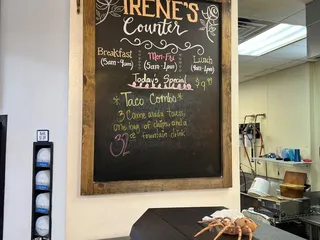 IRENE'S
Counter
Breakfast Mon-Fri Lunch
Today's Special
$9.99
* Taco Combo *
3 Carne asada tacos,
one bag of chips and a
32oz fountain drink